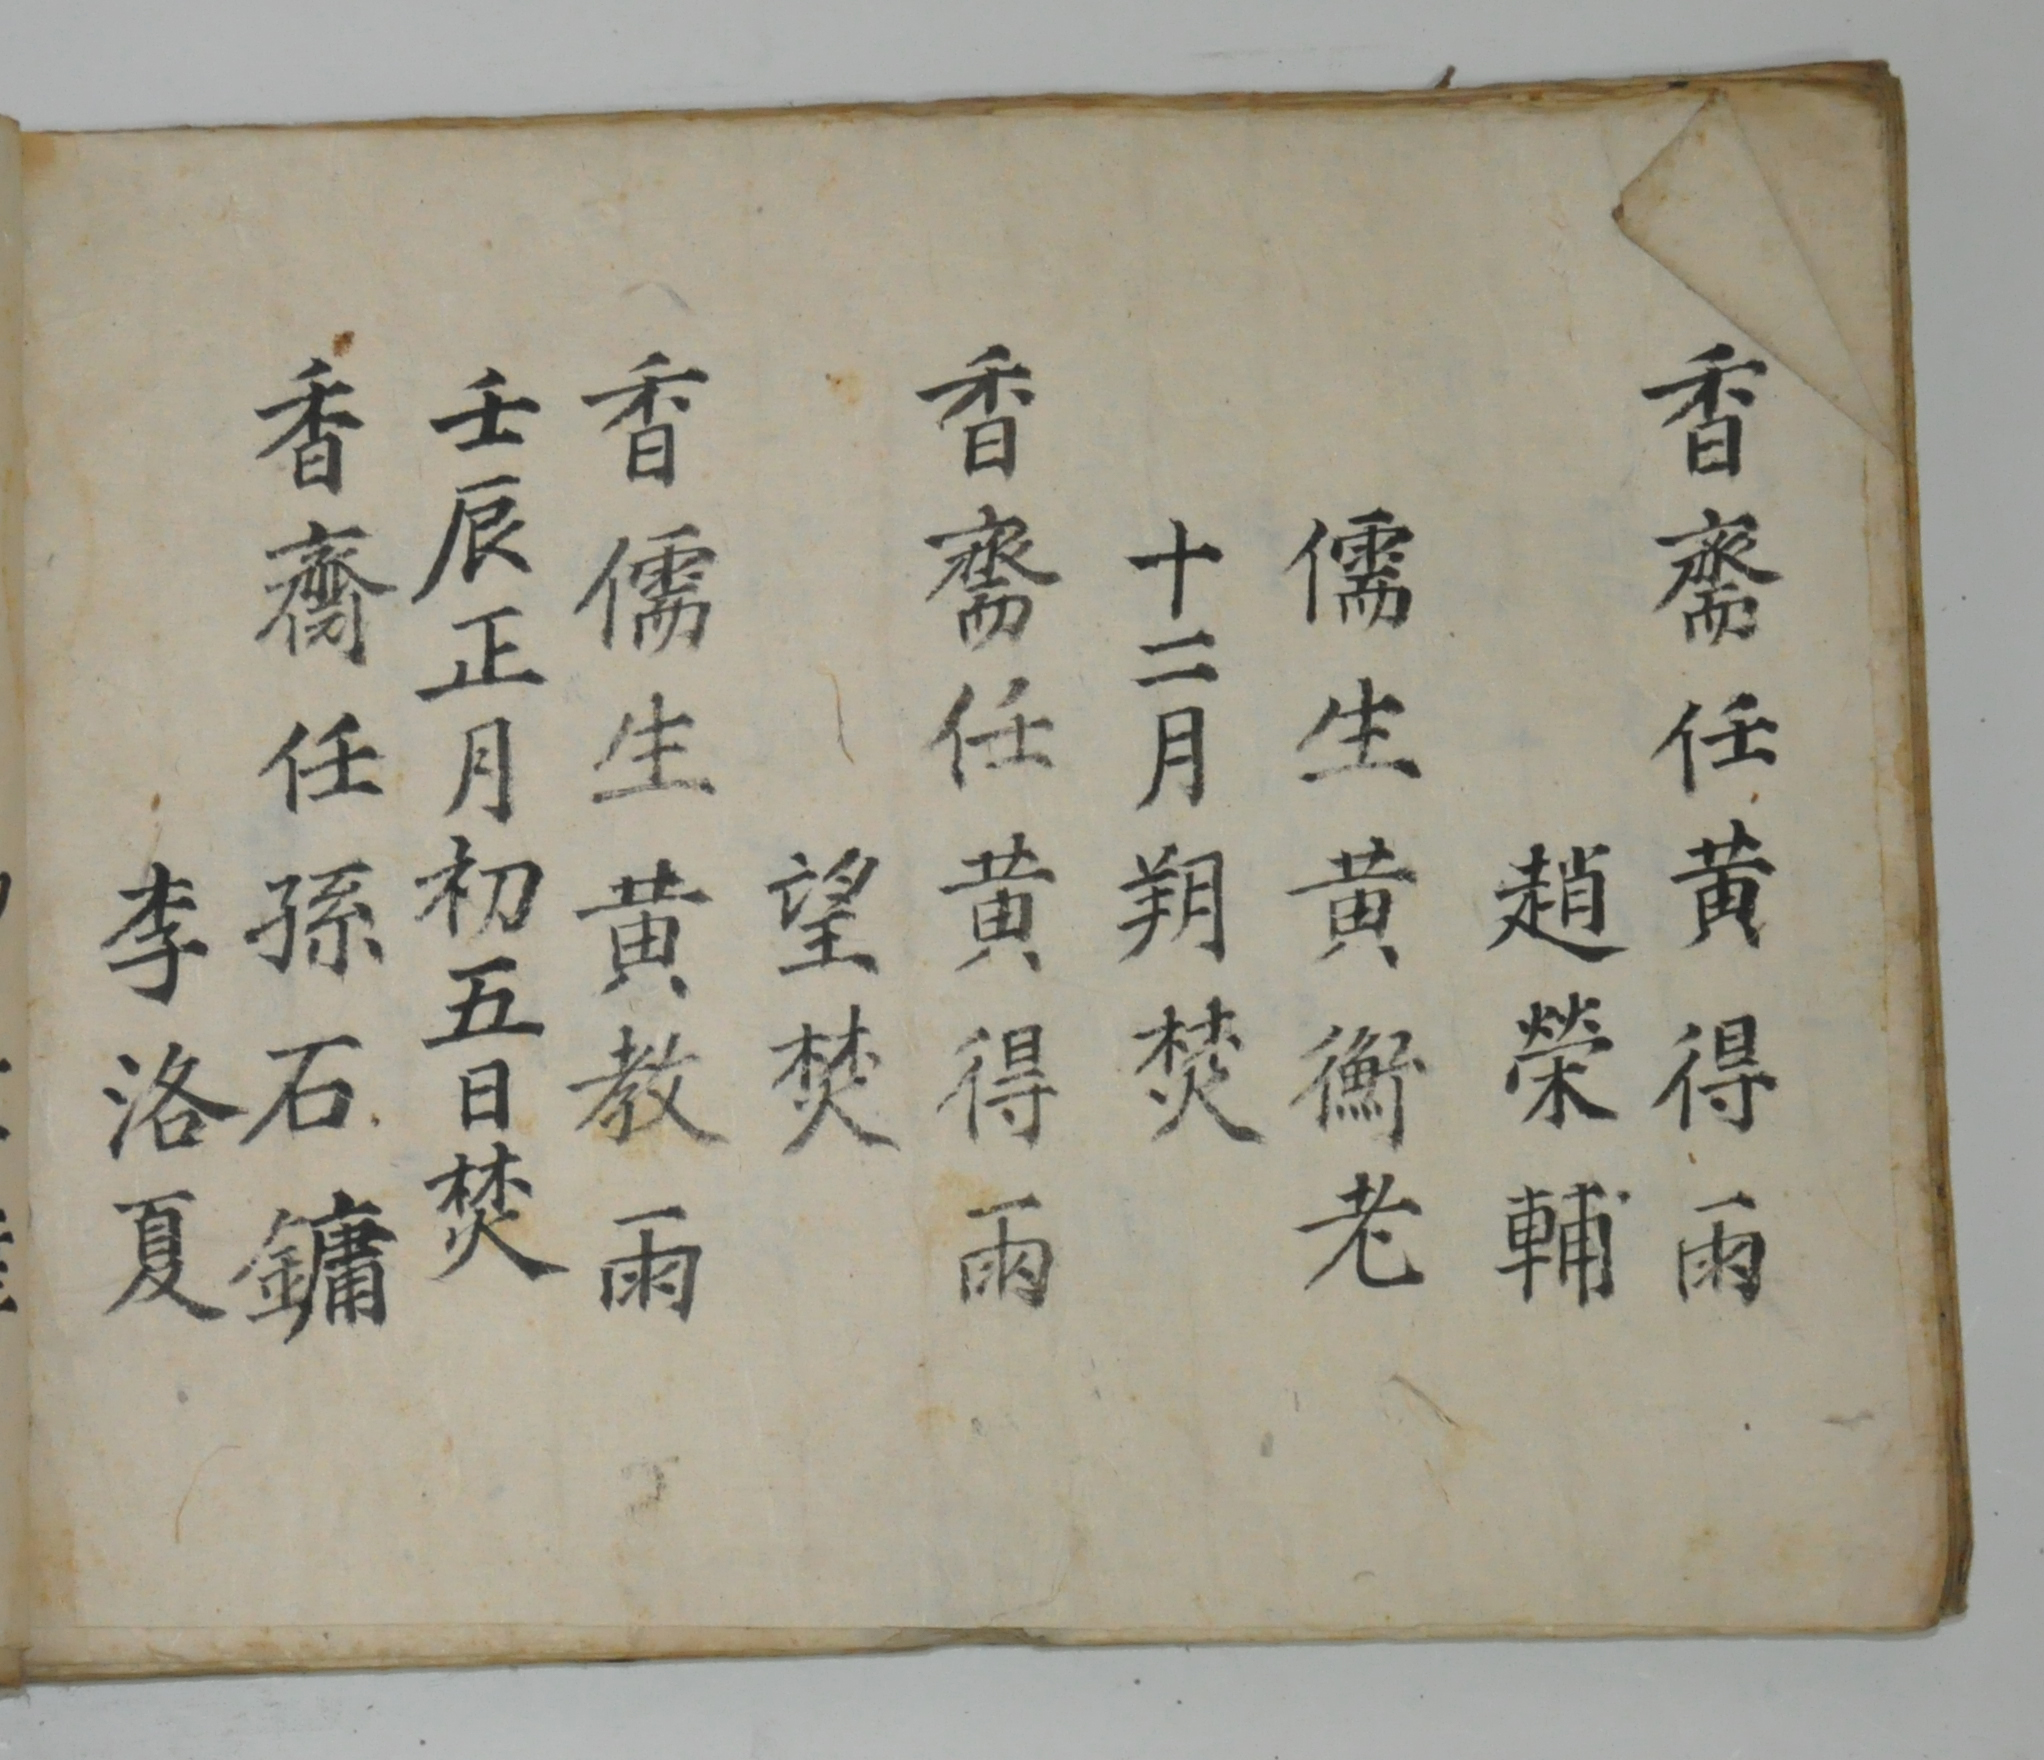 香齋任黃得雨
趙榮輔
儒生黃衡老
十二月朔焚
香齋任黃得雨
望焚
香儒生黃敎雨
壬辰正月初五日焚
香齋任孫石鏞
李洛夏